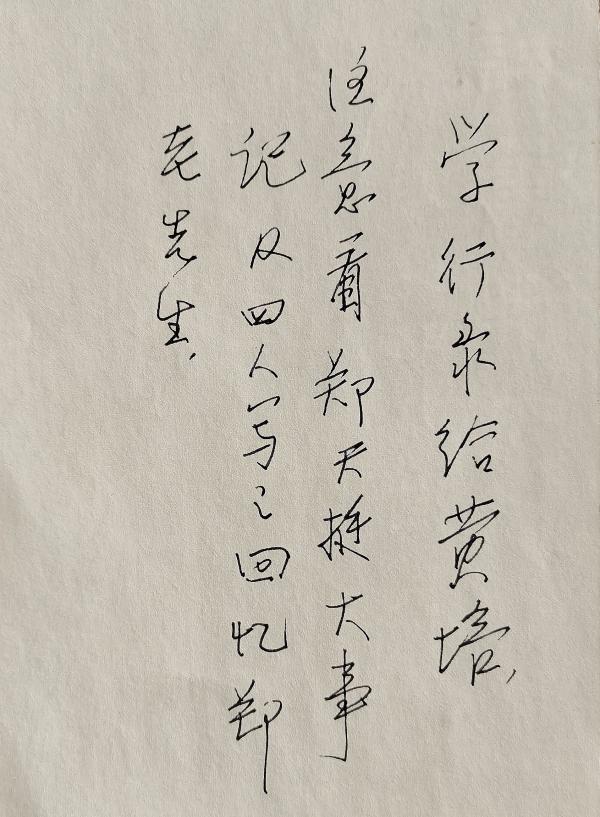 学行录给黄培，
注意看郑天挺大事
记及四人写之回忆郑
老先生，